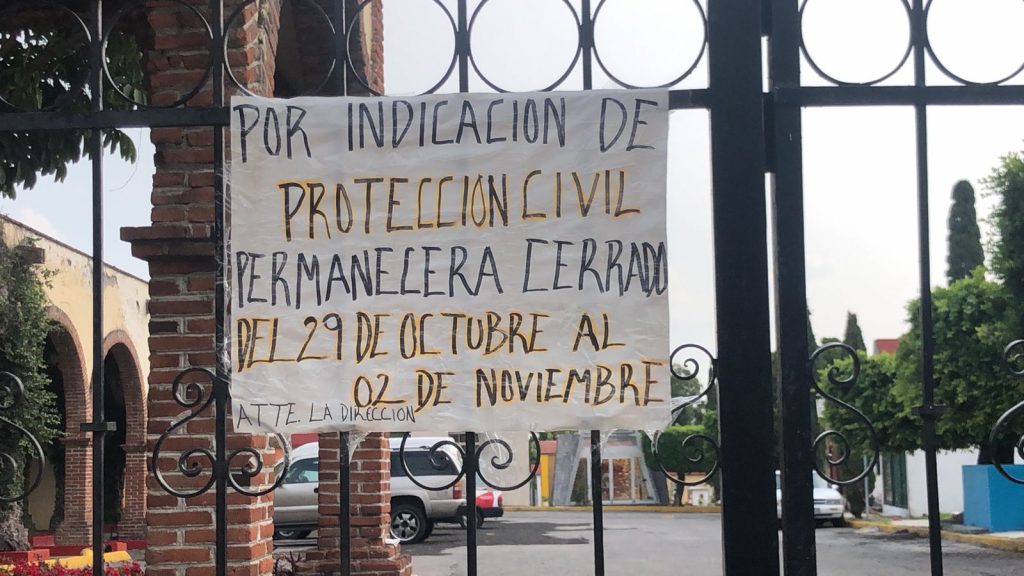 POR INDICACION DE
PROTECCIÓN CIVIL
PERMANECERA CERRADO
DEL 29 DE OCTUBRE AL
02 DE NOVIEMBRE
ATTE. LA DIRECCION